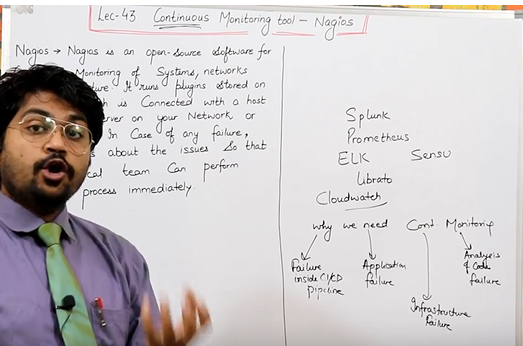 Lec-43 Continuous Monitoring tool - Nagios
Nagios → Nagios is an open-source software for
Monitoring of Systems, networks
It runs plugins stored on
is Connected with a host
on your Network or
In Case of any failure,
about the issues So that
team Can perform
process immediately
Splunk
Prometheus
ELK Sensu
Librato
Cloudwatch
why we need Cont Monitoring
Failure
inside CI/CD
pipeline
Application
failure
Infrastructure
Failure
Analysis
of Code
failure